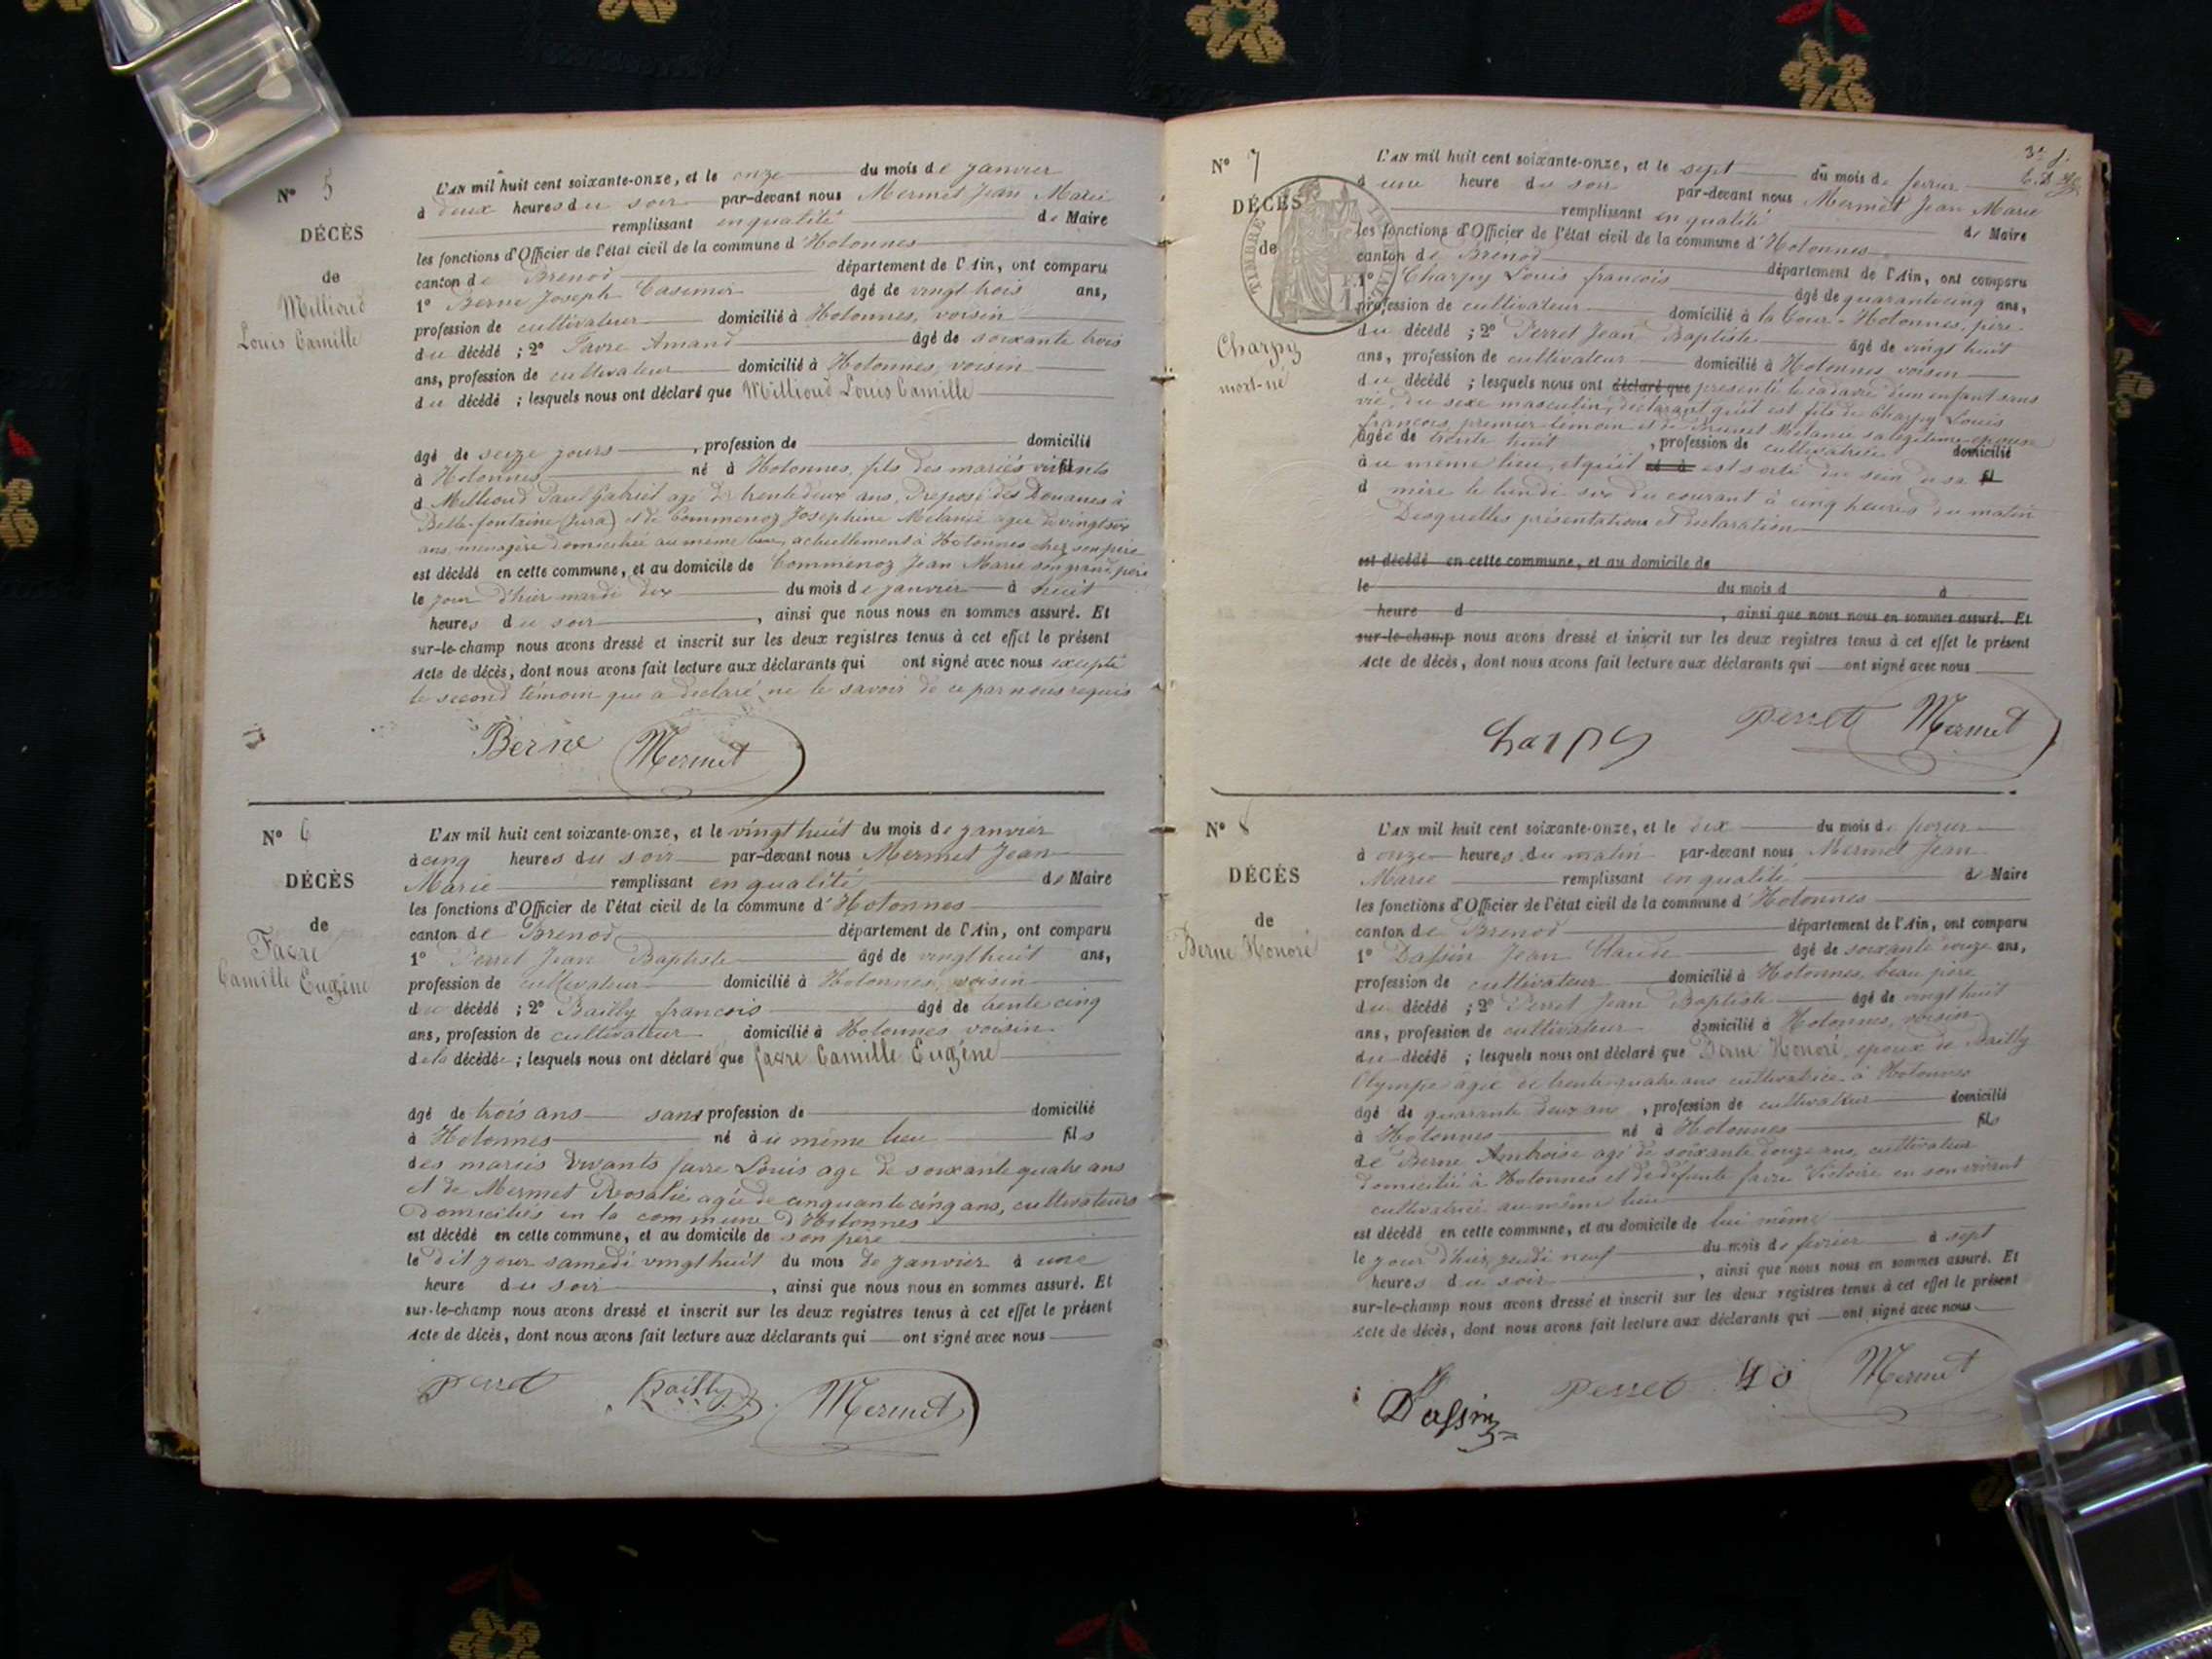 N° 5
DÉCÈS
de
Millioud
Louis Camille
L'AN mil huit cent soixante-onze, et le onze du mois de janvier
à deux heures du soir par-devant nous Mermet Jean Marie
remplissant en qualité de Maire
les fonctions d'Officier de l'état civil de la commune d'Hotonnes
canton de Brenod département de l'Ain, ont comparu
1° Berne Joseph Casimir âgé de vingt trois ans,
profession de cultivateur domicilié à Hotonnes, voisin
du décédé ; 2° Favre Amand âgé de soixante trois
ans, profession de cultivateur domicilié à Hotonnes, voisin
du décédé ; lesquels nous ont déclaré que Millioud Louis Camille
âgé de seize jours , profession de domicilié
à Hotonnes né à Hotonnes, fils des mariés vivants fil
d Millioud Paul Gabriel agé de trente deux ans, Préposé des Douanes à
Belle-fontaine (Jura) et de Commenoz Josephine Melanie agée de vingt six
ans, menagère domiciliée au même lieu, actuellement à Hotonnes chez son père
est décédé en cette commune, et au domicile de Commenoz Jean Marie son grand père
le jour d'hier mardi dix du mois de janvier à huit
heures du soir , ainsi que nous nous en sommes assuré. Et
sur-le-champ nous avons dressé et inscrit sur les deux registres tenus à cet effet le présent
Acte de décès, dont nous avons fait lecture aux déclarants qui ont signé avec nous excepté
le second témoin que a declaré ne le savoir de ce par nous requis
Berne Mermet
N° 6
DÉCÈS
de
Favre
Camille Eugène
L'AN mil huit cent soixante-onze, et le vingt huit du mois de janvier
à cinq heures du soir par-devant nous Mermet Jean
Marie remplissant en qualité de Maire
les fonctions d'Officier de l'état civil de la commune d'Hotonnes
canton de Brenod département de l'Ain, ont comparu
1° Perret Jean Baptiste âgé de vingt huit ans,
profession de cultivateur domicilié à Hotonnes, voisin
du décédé ; 2° Bailly francois âgé de trente cinq
ans, profession de cultivateur domicilié à Hotonnes voisin
de la décédée ; lesquels nous ont déclaré que favre Camille Eugène
âgé de trois ans sans profession de domicilié
à Hotonnes né à u même lieu fils
des mariés vivants favre Louis age de soixante quatre ans
et de Mermet Rosalie agée de cinquante cinq ans, cultivateurs
domiciliés en la commune d'Hotonnes
est décédé en cette commune, et au domicile de son père
le dit jour samedi vingt huit du mois de janvier à une
heure du soir , ainsi que nous nous en sommes assuré. Et
sur-le-champ nous avons dressé et inscrit sur les deux registres tenus à cet effet le présent
Acte de décès, dont nous avons fait lecture aux déclarants qui ont signé avec nous
Perret Bailly Mermet
3e f.
N° 7
DÉCÈS
de
TIMBRE IMPERIAL
Charpy
mort-né
L'AN mil huit cent soixante-onze, et le sept du mois de fevrier
à une heure du soir par-devant nous Mermet Jean Marie
remplissant en qualité de Maire
les fonctions d'Officier de l'état civil de la commune d'Hotonnes
canton de Brénod département de l'Ain, ont comparu
1° Charpy Louis francois âgé de quarante cinq ans,
profession de cultivateur domicilié à la Cour - Hotonnes, père
du décédé ; 2° Perret Jean Baptiste âgé de vingt huit
ans, profession de cultivateur domicilié à Hotonnes voisin
du décédé ; lesquels nous ont déclaré que presenté le cadavre d'un enfant sans
vie, du sexe masculin, déclarant qu'il est fils de Charpy Louis
francois, premier témoin et de Brunet Melanie sa legitime epouse
âgée de trente huit , profession de cultivatrice domicilié
à u même lieu, et qu'il né à est sorti du sein de sa fil
d mère le lundi six du courant à cinq heures du matin
Desquelles présentations et declaration
est décédé en cette commune, et au domicile de
le du mois d à
heure d , ainsi que nous nous en sommes assuré. Et
sur-le-champ nous avons dressé et inscrit sur les deux registres tenus à cet effet le présent
Acte de décès, dont nous avons fait lecture aux déclarants qui ont signé avec nous
Charpy Perret Mermet
N° 8
DÉCÈS
de
Berne Honoré
L'AN mil huit cent soixante-onze, et le dix du mois de fevrier
à onze heures du matin par-devant nous Mermet Jean
Marie remplissant en qualité de Maire
les fonctions d'Officier de l'état civil de la commune d'Hotonnes
canton de Brenod département de l'Ain, ont comparu
1° Dassin Jean Claude âgé de soixante ans,
profession de cultivateur domicilié à Hotonnes, beau père
du décédé ; 2° Perret Jean Baptiste âgé de vingt huit
ans, profession de cultivateur domicilié à Hotonnes, voisin
du décédé ; lesquels nous ont déclaré que Berne Honoré, epoux de Bailly
Olympe agée de trente quatre ans cultivatrice à Hotonnes
âgé de quarante deux ans , profession de cultivateur domicilié
à Hotonnes né à Hotonnes fils
de Berne Ambroise agé de soixante douze ans, cultivateur
domicilié à Hotonnes et de défunte favre Victoire en son vivant
cultivatrice au même lieu
est décédé en cette commune, et au domicile de lui même
le jour d'hier, jeudi neuf du mois de fevrier à sept
heures du soir , ainsi que nous nous en sommes assuré. Et
sur-le-champ nous avons dressé et inscrit sur les deux registres tenus à cet effet le présent
Acte de décès, dont nous avons fait lecture aux déclarants qui ont signé avec nous
Dassin Perret Mermet